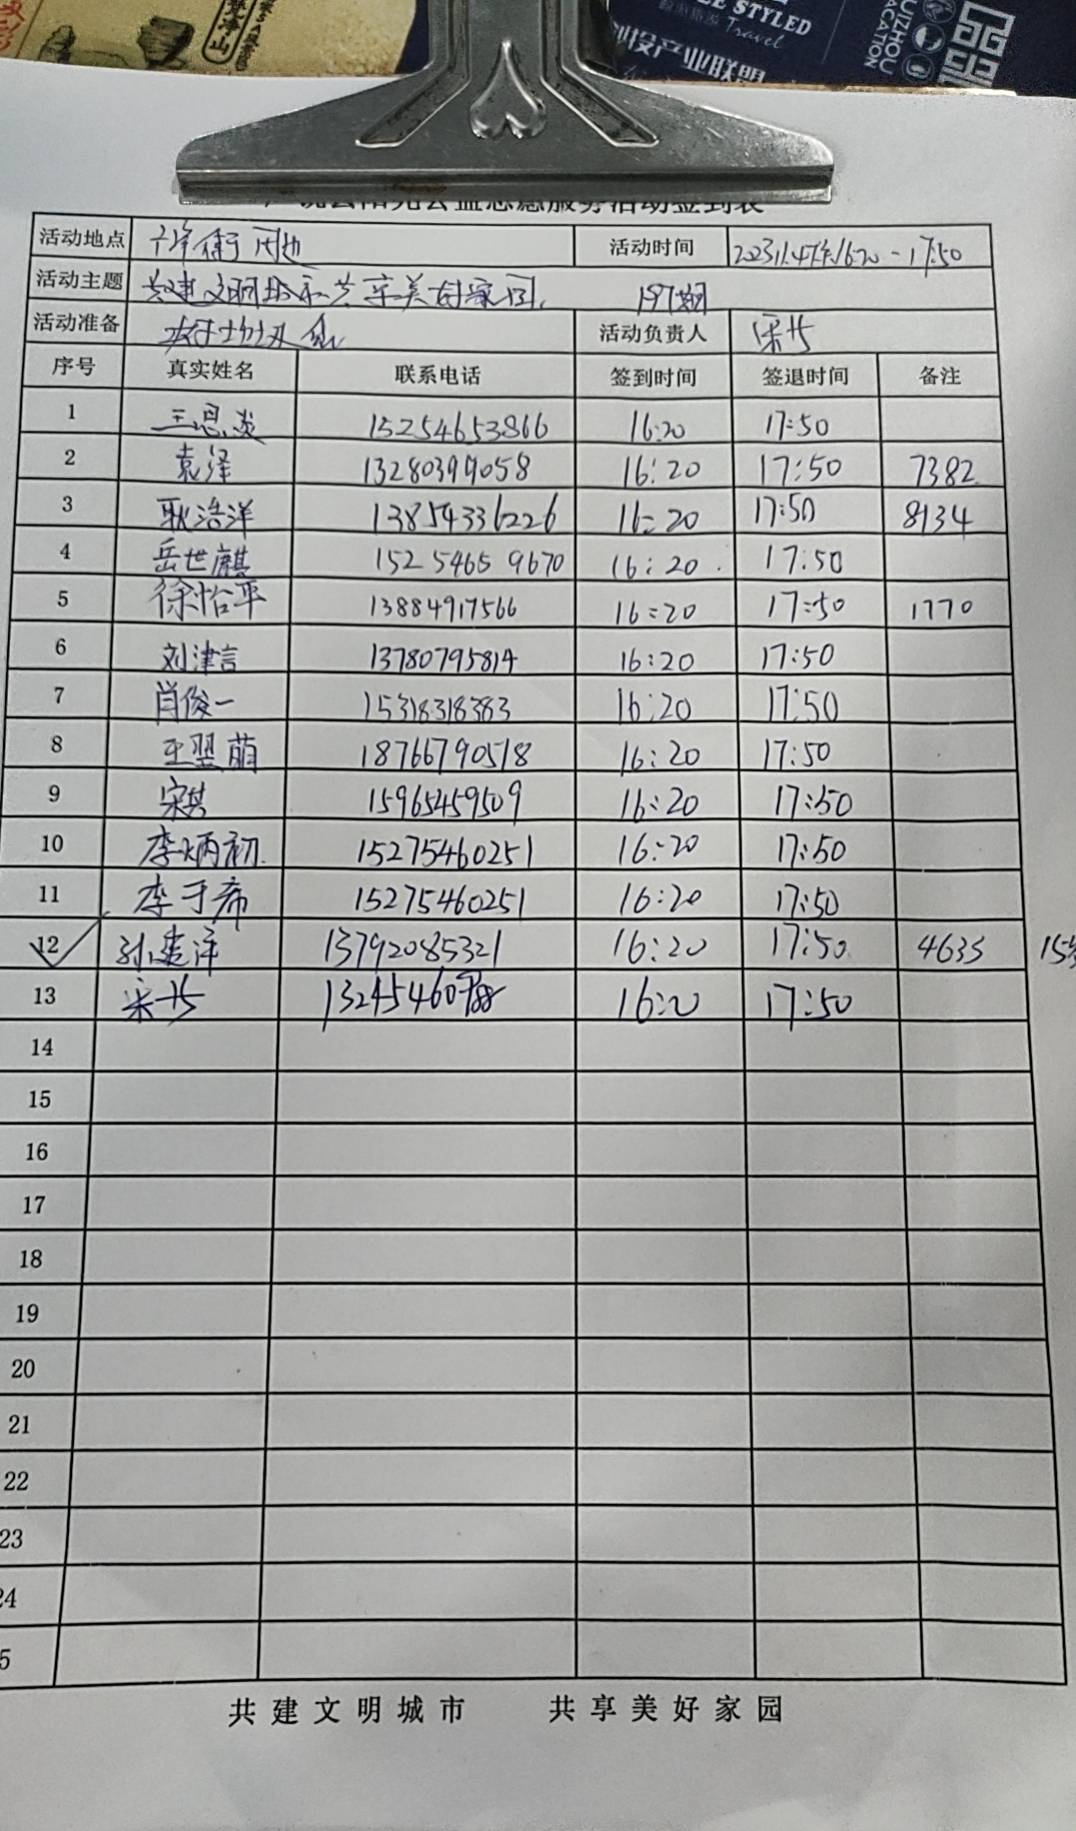 STYLED
Travel
创投产业联盟
UIZHOU
ACATION
净山
公益志愿服务活动签到表
活动地点 周边 活动时间 2023.11.4 下午16:20-17:50
活动主题 共建文明城市共享美好家园 197期
活动准备 活动负责人
序号 真实姓名 联系电话 签到时间 签退时间 备注
1 王思淡 15254653866 16:20 17:50
2 袁泽 13280399058 16:20 17:50 7382
3 耿浩洋 13854336226 16:20 17:50 8134
4 岳世麒 15254659670 16:20 17:50
5 徐怡平 13884917566 16:20 17:50 1770
6 刘津言 13780795814 16:20 17:50
7 肖俊一 15318318383 16:20 17:50
8 王翌萌 18766790518 16:20 17:50
9 宋其 15965459509 16:20 17:50
10 李炳初 15275460251 16:20 17:50
11 李于希 15275460251 16:20 17:50
12 孙建洋 13792085321 16:20 17:50 4633 15岁
13 16:20 17:50
14
15
16
17
18
19
20
21
22
23
24
5
共建文明城市 共享美好家园